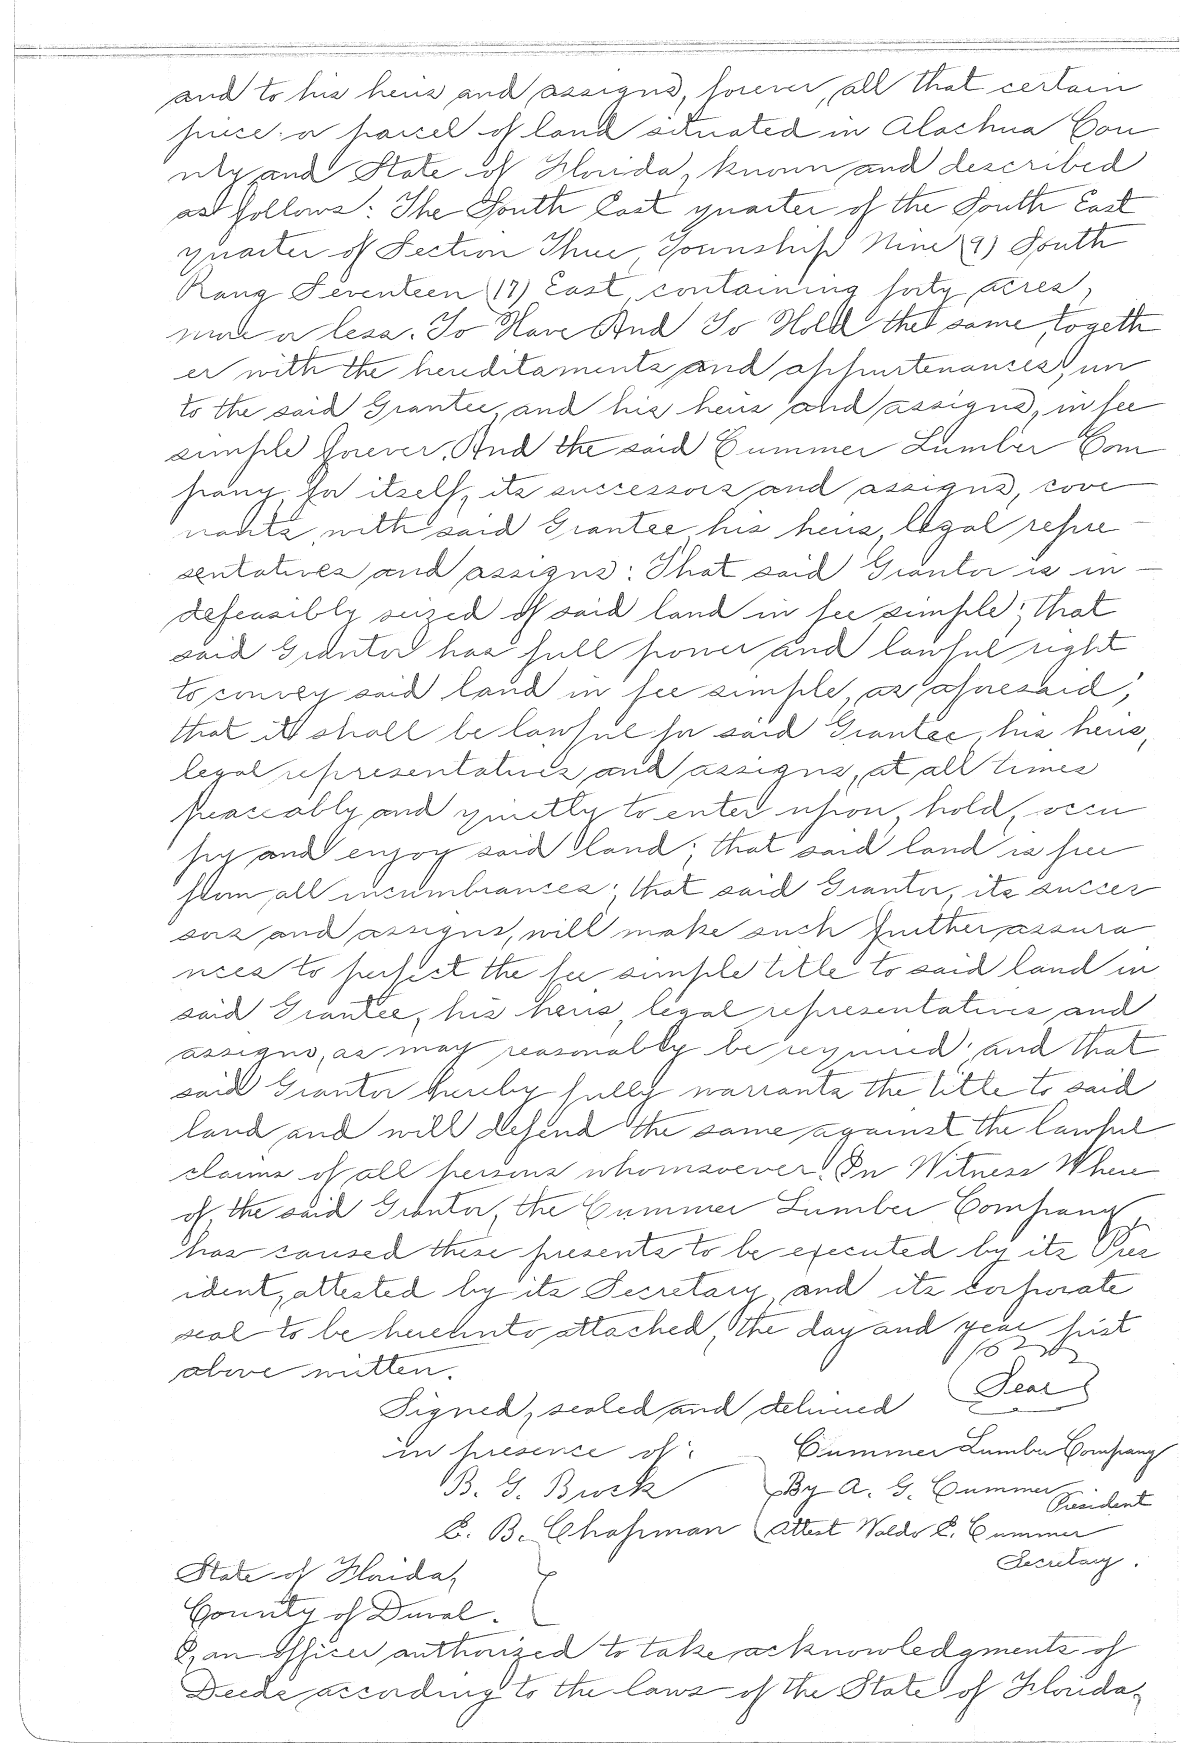 and to his heirs and assigns, forever, all that certain
piece or parcel of land situated in Alachua Cou
nty and State of Florida, known and described
as follows: The South East quarter of the South East
quarter of Section Three, Township Nine (9) South
Rang Seventeen (17) East, containing forty acres,
more or less. To Have And To Hold the same, togeth
er with the hereditaments and appurtenances, un
to the said Grantee, and his heirs and assigns, in fee
simple forever. And the said Cummer Lumber Com
pany, for itself, its successors and assigns, cove
nants, with said Grantee, his heirs, legal repre
sentatives and assigns: That said Grantor is in-
defeasibly seized of said land in fee simple; that
said Grantor has full power and lawful right
to convey said land in fee simple, as aforesaid;
that it shall be lawful for said Grantee, his heirs,
legal representatives and assigns, at all times
peaceably and quietly to enter upon, hold, occu
py and enjoy said land; that said land is free
from all incumbrances; that said Grantor, its succes
sors and assigns, will make such further assura
nces to perfect the fee simple title to said land in
said Grantee, his heirs, legal representatives and
assigns, as may reasonably be required; and that
said Grantor hereby fully warrants the title to said
land and will defend the same against the lawful
claims of all persons whomsoever. In Witness Where
of, the said Grantor, the Cummer Lumber Company,
has caused these presents to be executed by its Pres
ident, attested by its Secretary, and its corporate
seal to be hereunto attached, the day and year first
above written.
Signed, sealed and delivered (Seal)
in presence of: Cummer Lumber Company
B. G. Buck By A. G. Cummer President
C. B. Chapman Attest Waldo E. Cummer
Secretary.
State of Florida,
County of Duval.
I, an officer authorized to take acknowledgments of
Deeds according to the laws of the State of Florida,